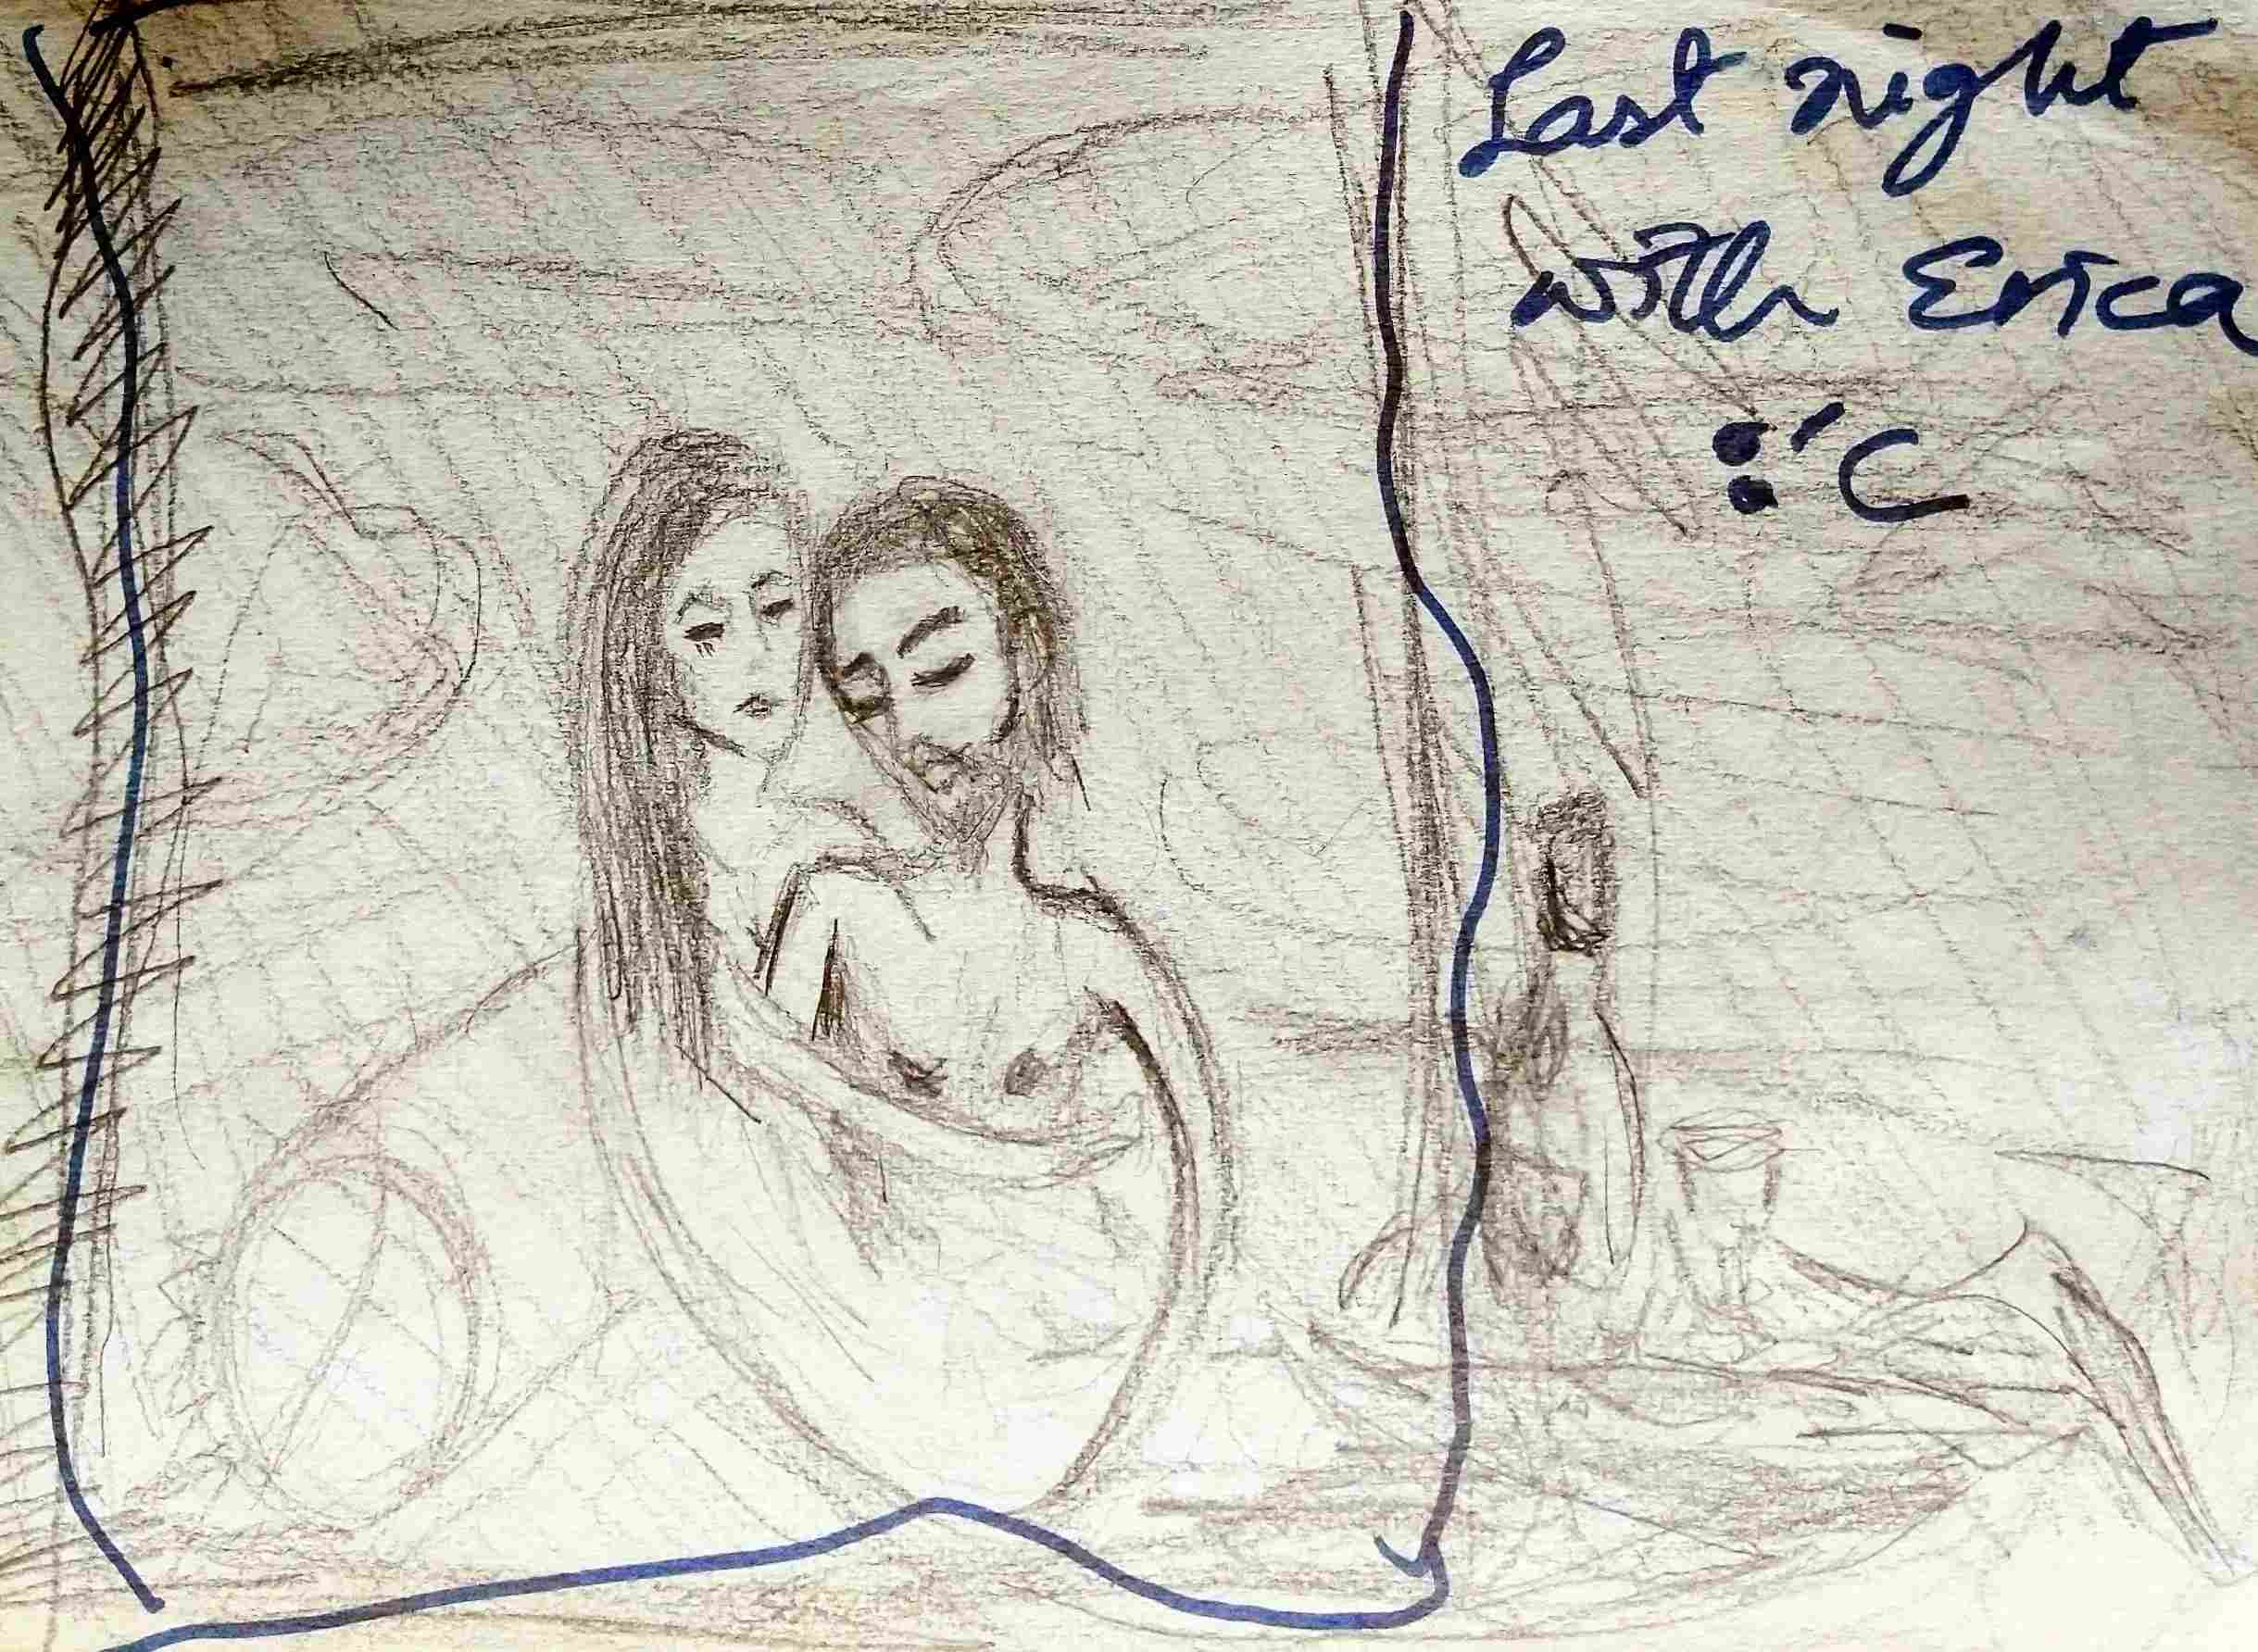 Last night
with Erica
:'(